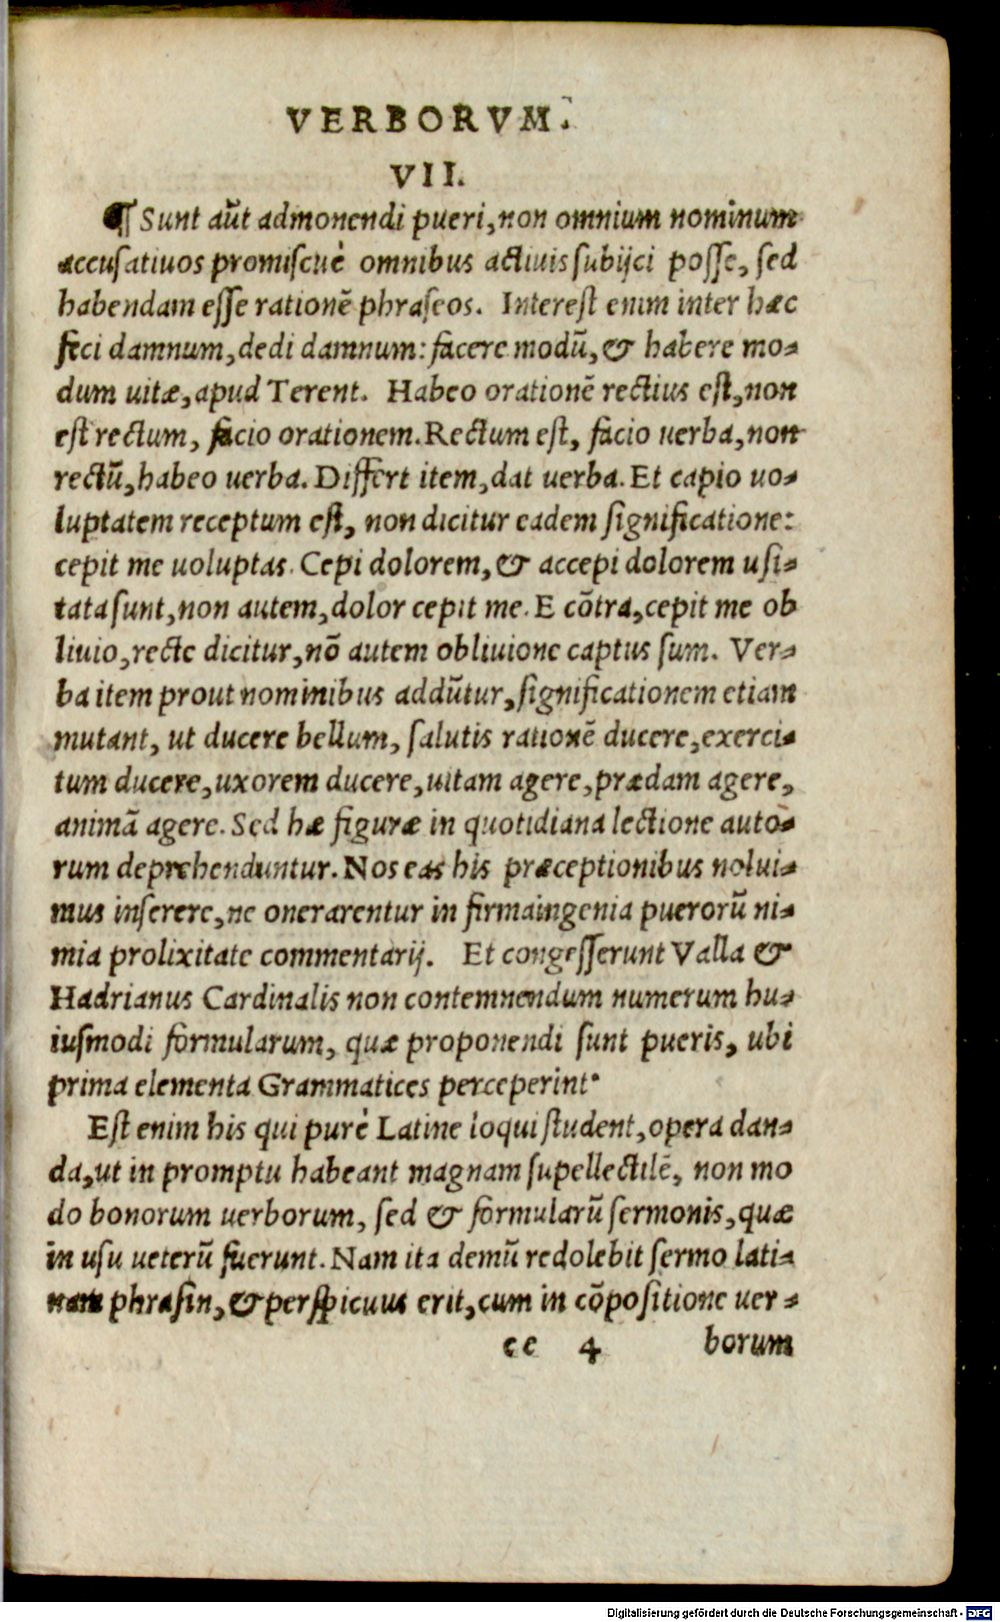 VERBORVM.
VII.
¶ Sunt aūt admonendi pueri, non omnium nominum
accusatiuos promiscuè omnibus actiuis subijci posse, sed
habendam esse rationē phraseos. Interest enim inter hæc
feci damnum, dedi damnum: facere modū, & habere mo-
dum uitæ, apud Terent. Habeo orationē rectius est, non
est rectum, facio orationem. Rectum est, facio uerba, non
rectū, habeo uerba. Differt item, dat uerba. Et capio uo-
luptatem receptum est, non dicitur eadem significatione:
cepit me uoluptas. Cepi dolorem, & accepi dolorem usi-
tata sunt, non autem, dolor cepit me. E cōtra, cepit me ob
liuio, recte dicitur, nō autem obliuione captus sum. Ver-
ba item prout nominibus addūtur, significationem etiam
mutant, ut ducere bellum, salutis rationē ducere, exerci-
tum ducere, uxorem ducere, uitam agere, prædam agere,
animā agere. Sed hæ figuræ in quotidiana lectione auto-
rum deprehenduntur. Nos eas his præceptionibus nolui-
mus inserere, ne onerarentur in firma ingenia puerorū ni-
mia prolixitate commentarij. Et congesserunt Valla &
Hadrianus Cardinalis non contemnendum numerum hu-
iusmodi formularum, quæ proponendi sunt pueris, ubi
prima elementa Grammatices perceperint.
Est enim his qui purè Latine loqui student, opera dan-
da, ut in promptu habeant magnam supellectilē, non mo
do bonorum uerborum, sed & formularū sermonis, quæ
in usu ueterū fuerunt. Nam ita demū redolebit sermo lati-
nam phrasin, & perspicuus erit, cum in cōpositione uer-
cc 4 borum
Digitalisierung gefördert durch die Deutsche Forschungsgemeinschaft - DFG